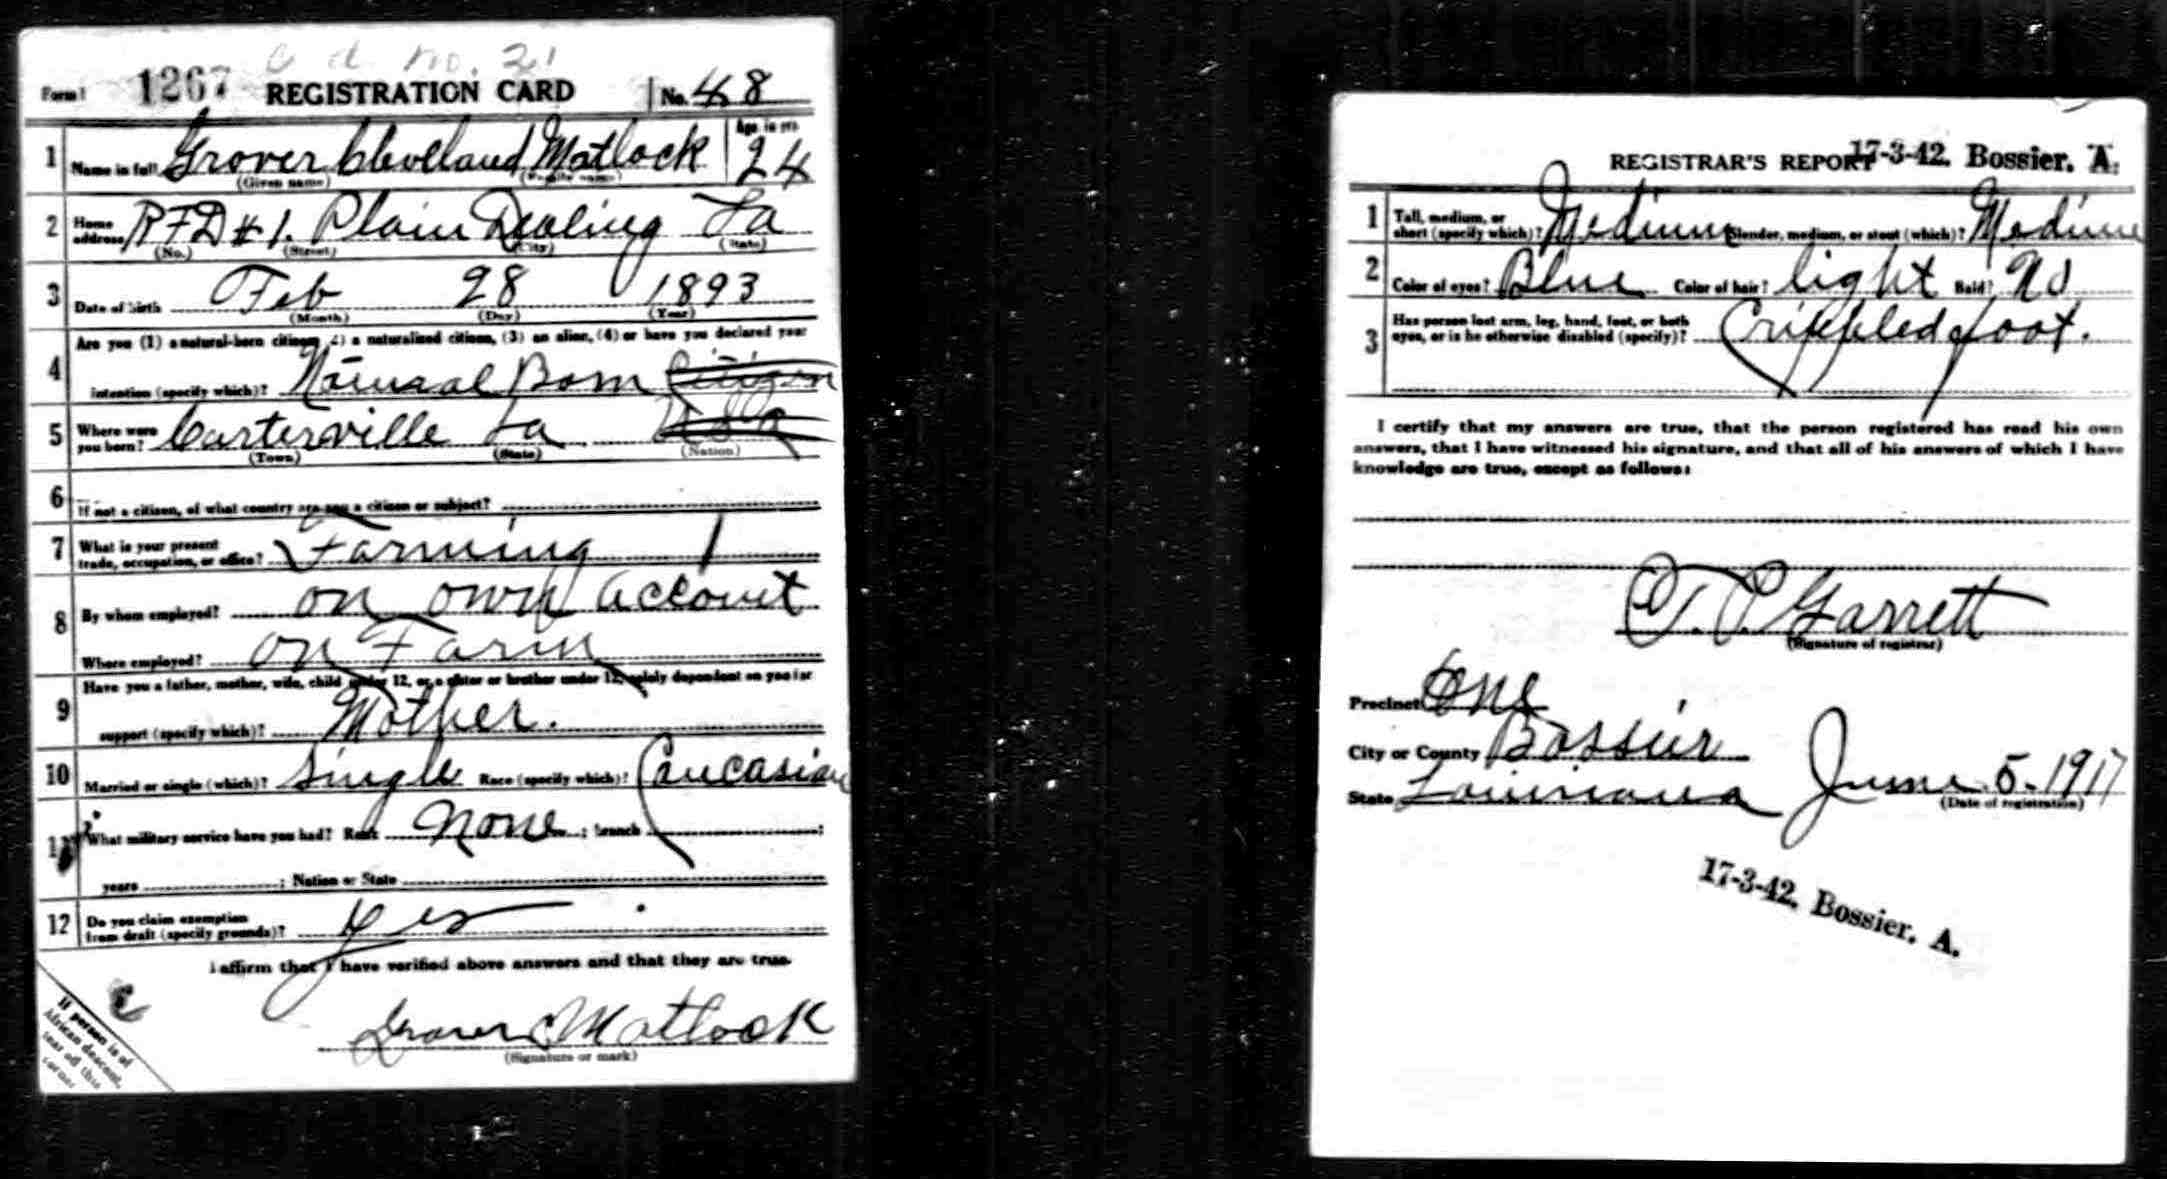 C d No. 21
Form 1 1267 REGISTRATION CARD No. 48
1 Name in full Grover Cleveland Matlock Age in yrs 24
(Given name) (Family name)
2 Home address RFD #1. Plain Dealing La
(No.) (Street) (City) (State)
3 Date of birth Feb 28 1893
(Month) (Day) (Year)
4 Are you (1) a natural-born citizen (2) a naturalized citizen, (3) an alien, (4) or have you declared your
intention (specify which)? Natural Born Citizen
5 Where were you born? Carterville La USA
(Town) (State) (Nation)
6 If not a citizen, of what country are you a citizen or subject?
7 What is your present trade, occupation, or office? Farming 1
8 By whom employed? on own account
Where employed? on Farm
9 Have you a father, mother, wife, child under 12, or a sister or brother under 12, solely dependent on you for
support (specify which)? Mother.
10 Married or single (which)? Single Race (specify which)? Caucasian
11 What military service have you had? Rank None ; branch ;
years ; Nation or State
12 Do you claim exemption from draft (specify grounds)? Yes
I affirm that I have verified above answers and that they are true.
Grover C Matlock
(Signature or mark)
If person is of
African descent,
tear off this
corner
REGISTRAR'S REPORT 17-3-42. Bossier. A.
1 Tall, medium, or short (specify which)? Medium Slender, medium, or stout (which)? Medium
2 Color of eyes? Blue Color of hair? light Bald? No
3 Has person lost arm, leg, hand, foot, or both eyes, or is he otherwise disabled (specify)? Crippled foot.
I certify that my answers are true, that the person registered has read his own
answers, that I have witnessed his signature, and that all of his answers of which I have
knowledge are true, except as follows:
Garrett
(Signature of registrar)
Precinct One
City or County Bossier
State Louisiana June 5-1917
(Date of registration)
17-3-42. Bossier. A.